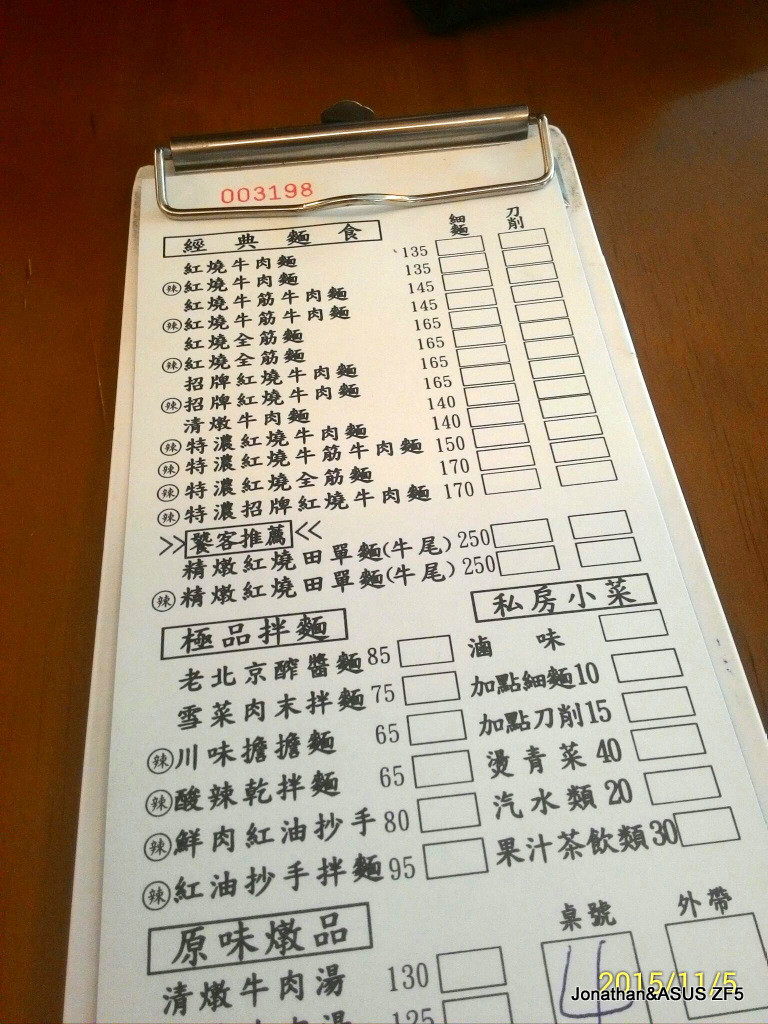 003198
細麵 刀削
經典麵食
紅燒牛肉麵 135
辣 紅燒牛肉麵 135
紅燒牛筋牛肉麵 145
辣 紅燒牛筋牛肉麵 145
紅燒全筋麵 165
辣 紅燒全筋麵 165
招牌紅燒牛肉麵 165
辣 招牌紅燒牛肉麵 165
清燉牛肉麵 140
辣 特濃紅燒牛肉麵 140
辣 特濃紅燒牛筋牛肉麵 150
辣 特濃紅燒全筋麵 170
辣 特濃招牌紅燒牛肉麵 170
>>饕客推薦<<
精燉紅燒田單麵(牛尾) 250
辣 精燉紅燒田單麵(牛尾) 250
極品拌麵
老北京醡醬麵 85
雪菜肉末拌麵 75
辣 川味擔擔麵 65
辣 酸辣乾拌麵 65
辣 鮮肉紅油抄手 80
辣 紅油抄手拌麵 95
私房小菜
滷味
加點細麵10
加點刀削15
燙青菜 40
汽水類 20
果汁茶飲類30
原味燉品
清燉牛肉湯 130
肉湯 125
桌號 外帶
4
2015/11/5
Jonathan&ASUS ZF5